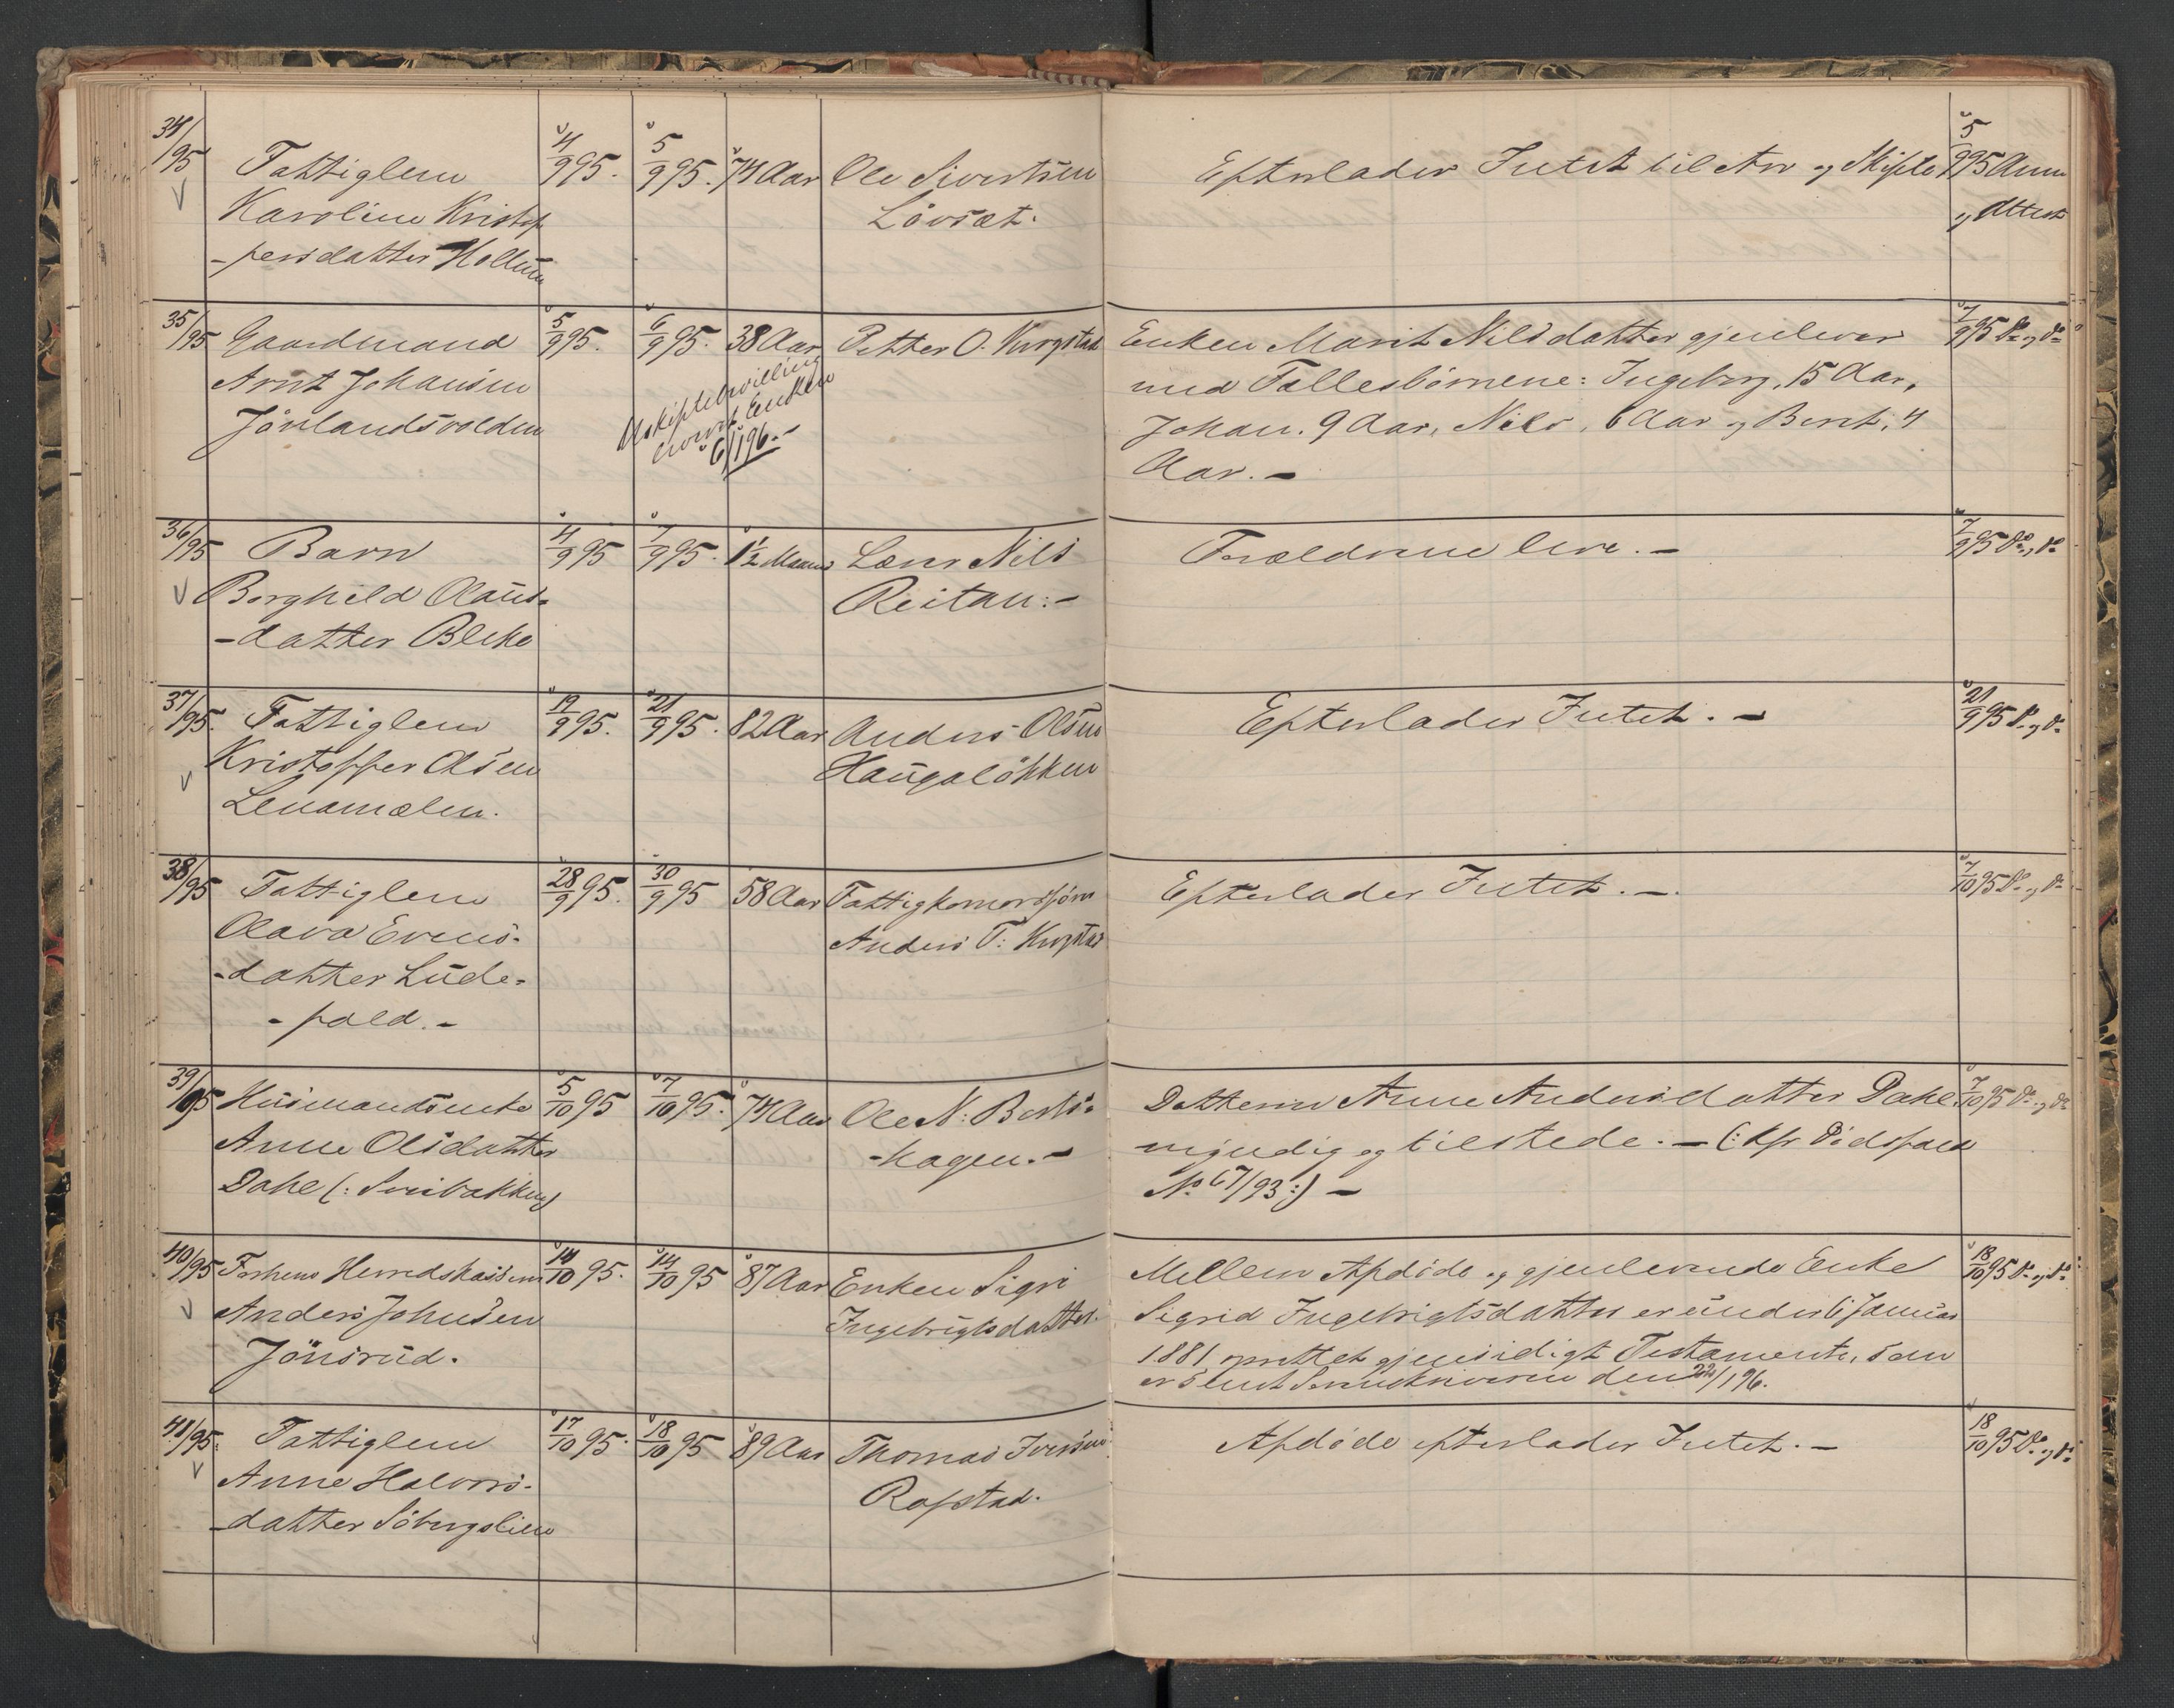 34/95 Fattiglem 4/9 95. 5/9 95. 74 Aar Ole Sivertsen Efterlader Intet til Arv og Skifte 5/9 95 Anm
Karoline Kristof Lövsæt. og Attest
-fersdatter Hollum
35/95 Gaardmand 5/9 95. 6/9 95. 38 Aar Petter O. Krogstad Enken Marit Nilsdatter gjenlever 7/9 95 Do og Do
Arnt Johansen med Fællesbörnene: Ingeborg, 15 Aar,
Jönlandsvolden Johan. 9 Aar, Nils, 6 Aar og Berit, 4
Aar. -
Uskiftebevilling
Enken
6/1 96. -
36/95 Barn 4/9 95 7/9 95. 1½ Maaned Lærer Nils Forældrene leve. - 7/9 95 Do og Do
Borghild Olaus- Reitan. -
-datter Bleke
37/95. Fattiglem 19/9 95. 21/9 95. 82 Aar Anders Olsen Efterlader Intet. - 21/9 95 Do og Do
Kristoffer Olsen Haugalökken
Lenamælen.
38/95 Fattiglem 28/9 95. 30/9 95 58 Aar Fattigkomorsfjorm Efterlader Intet. - 7/10 95 Do og Do
Olava Evens- Anders T. Krogstad
-datter Lude-
-fald. -
39/95 Husmandsenke 5/10 95 7/10 95. 74 Aar Ole N. Berts- Datteren Anne Andersdatter Dahl. 7/10 95 Do og Do
Anne Olsdatter -hagen. - myndig og tilstede. - (: kfr Dödsfald
Dahl (: Svebakken) No 67/93 :) -
40/95 Forhenv Herredskasserer 14/10 95. 14/10 95 87 Aar Enken Sigri Mellem Afdöde og gjenlevende Enke 18/10 95 Do og Do
Anders Johnsen Ingebrigtsdatter. Sigrid Ingebrigtsdatter er under 6 Januar
Jönsrud. 1881 oprettet gjensidigt Testamente, som
er sendt Sorenskriveren den 22/1 96.
41/95. Fattiglem 17/10 95. 18/10 95 89 Aar Thomas Iversen Afdöde efterlader Intet. - 18/10 95 Do og Do
Anne Halvors- Rofstad.
-datter Söbergslien